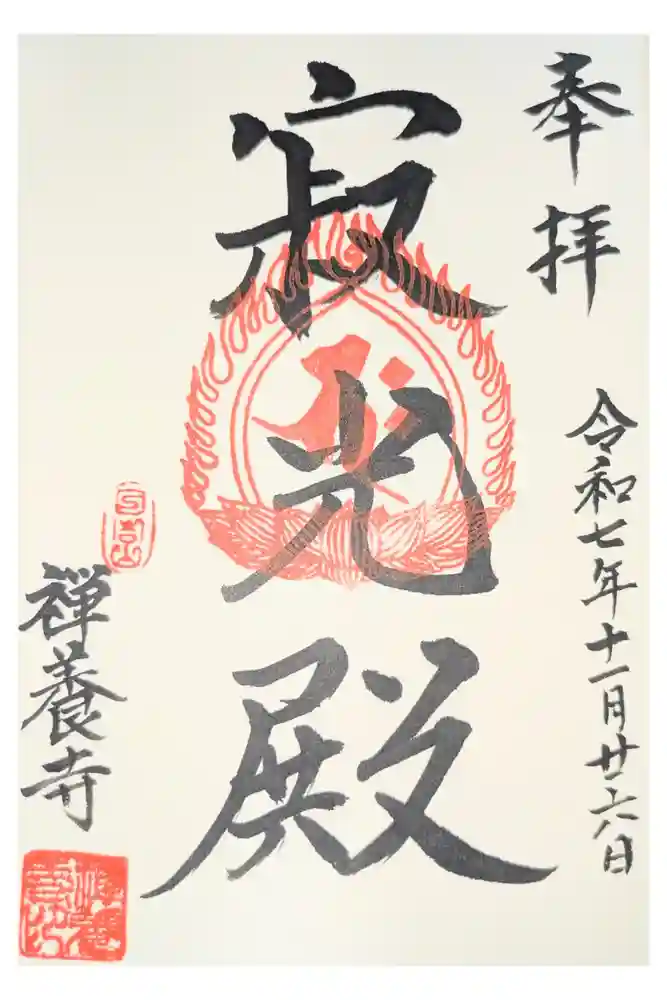 奉拝
令和七年十一月廿六日
寂光殿
禅養寺